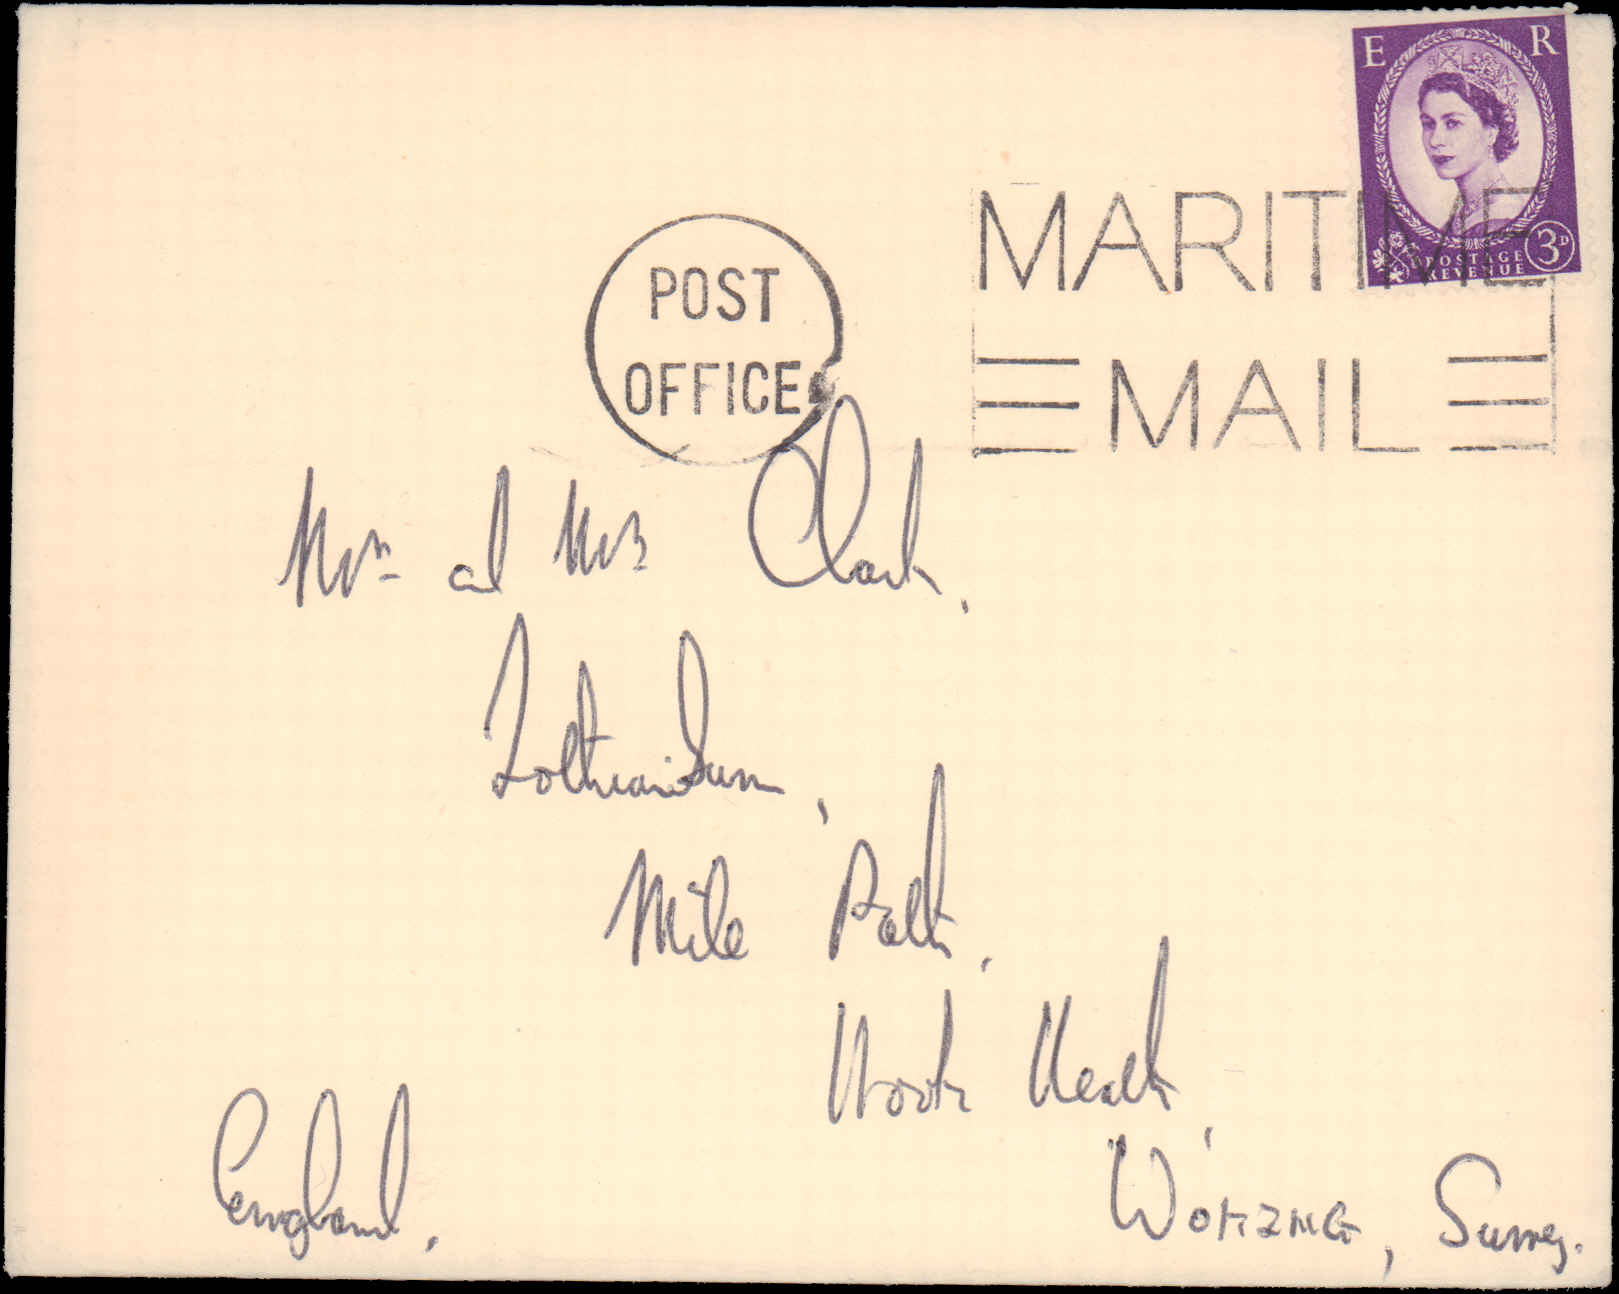 E R
POSTAGE
REVENUE
3D
MARITIME
MAIL
POST
OFFICE
Mr. and Mrs Clark,
Mile Path,
Hook Heath,
WOKING, Surrey.
England,